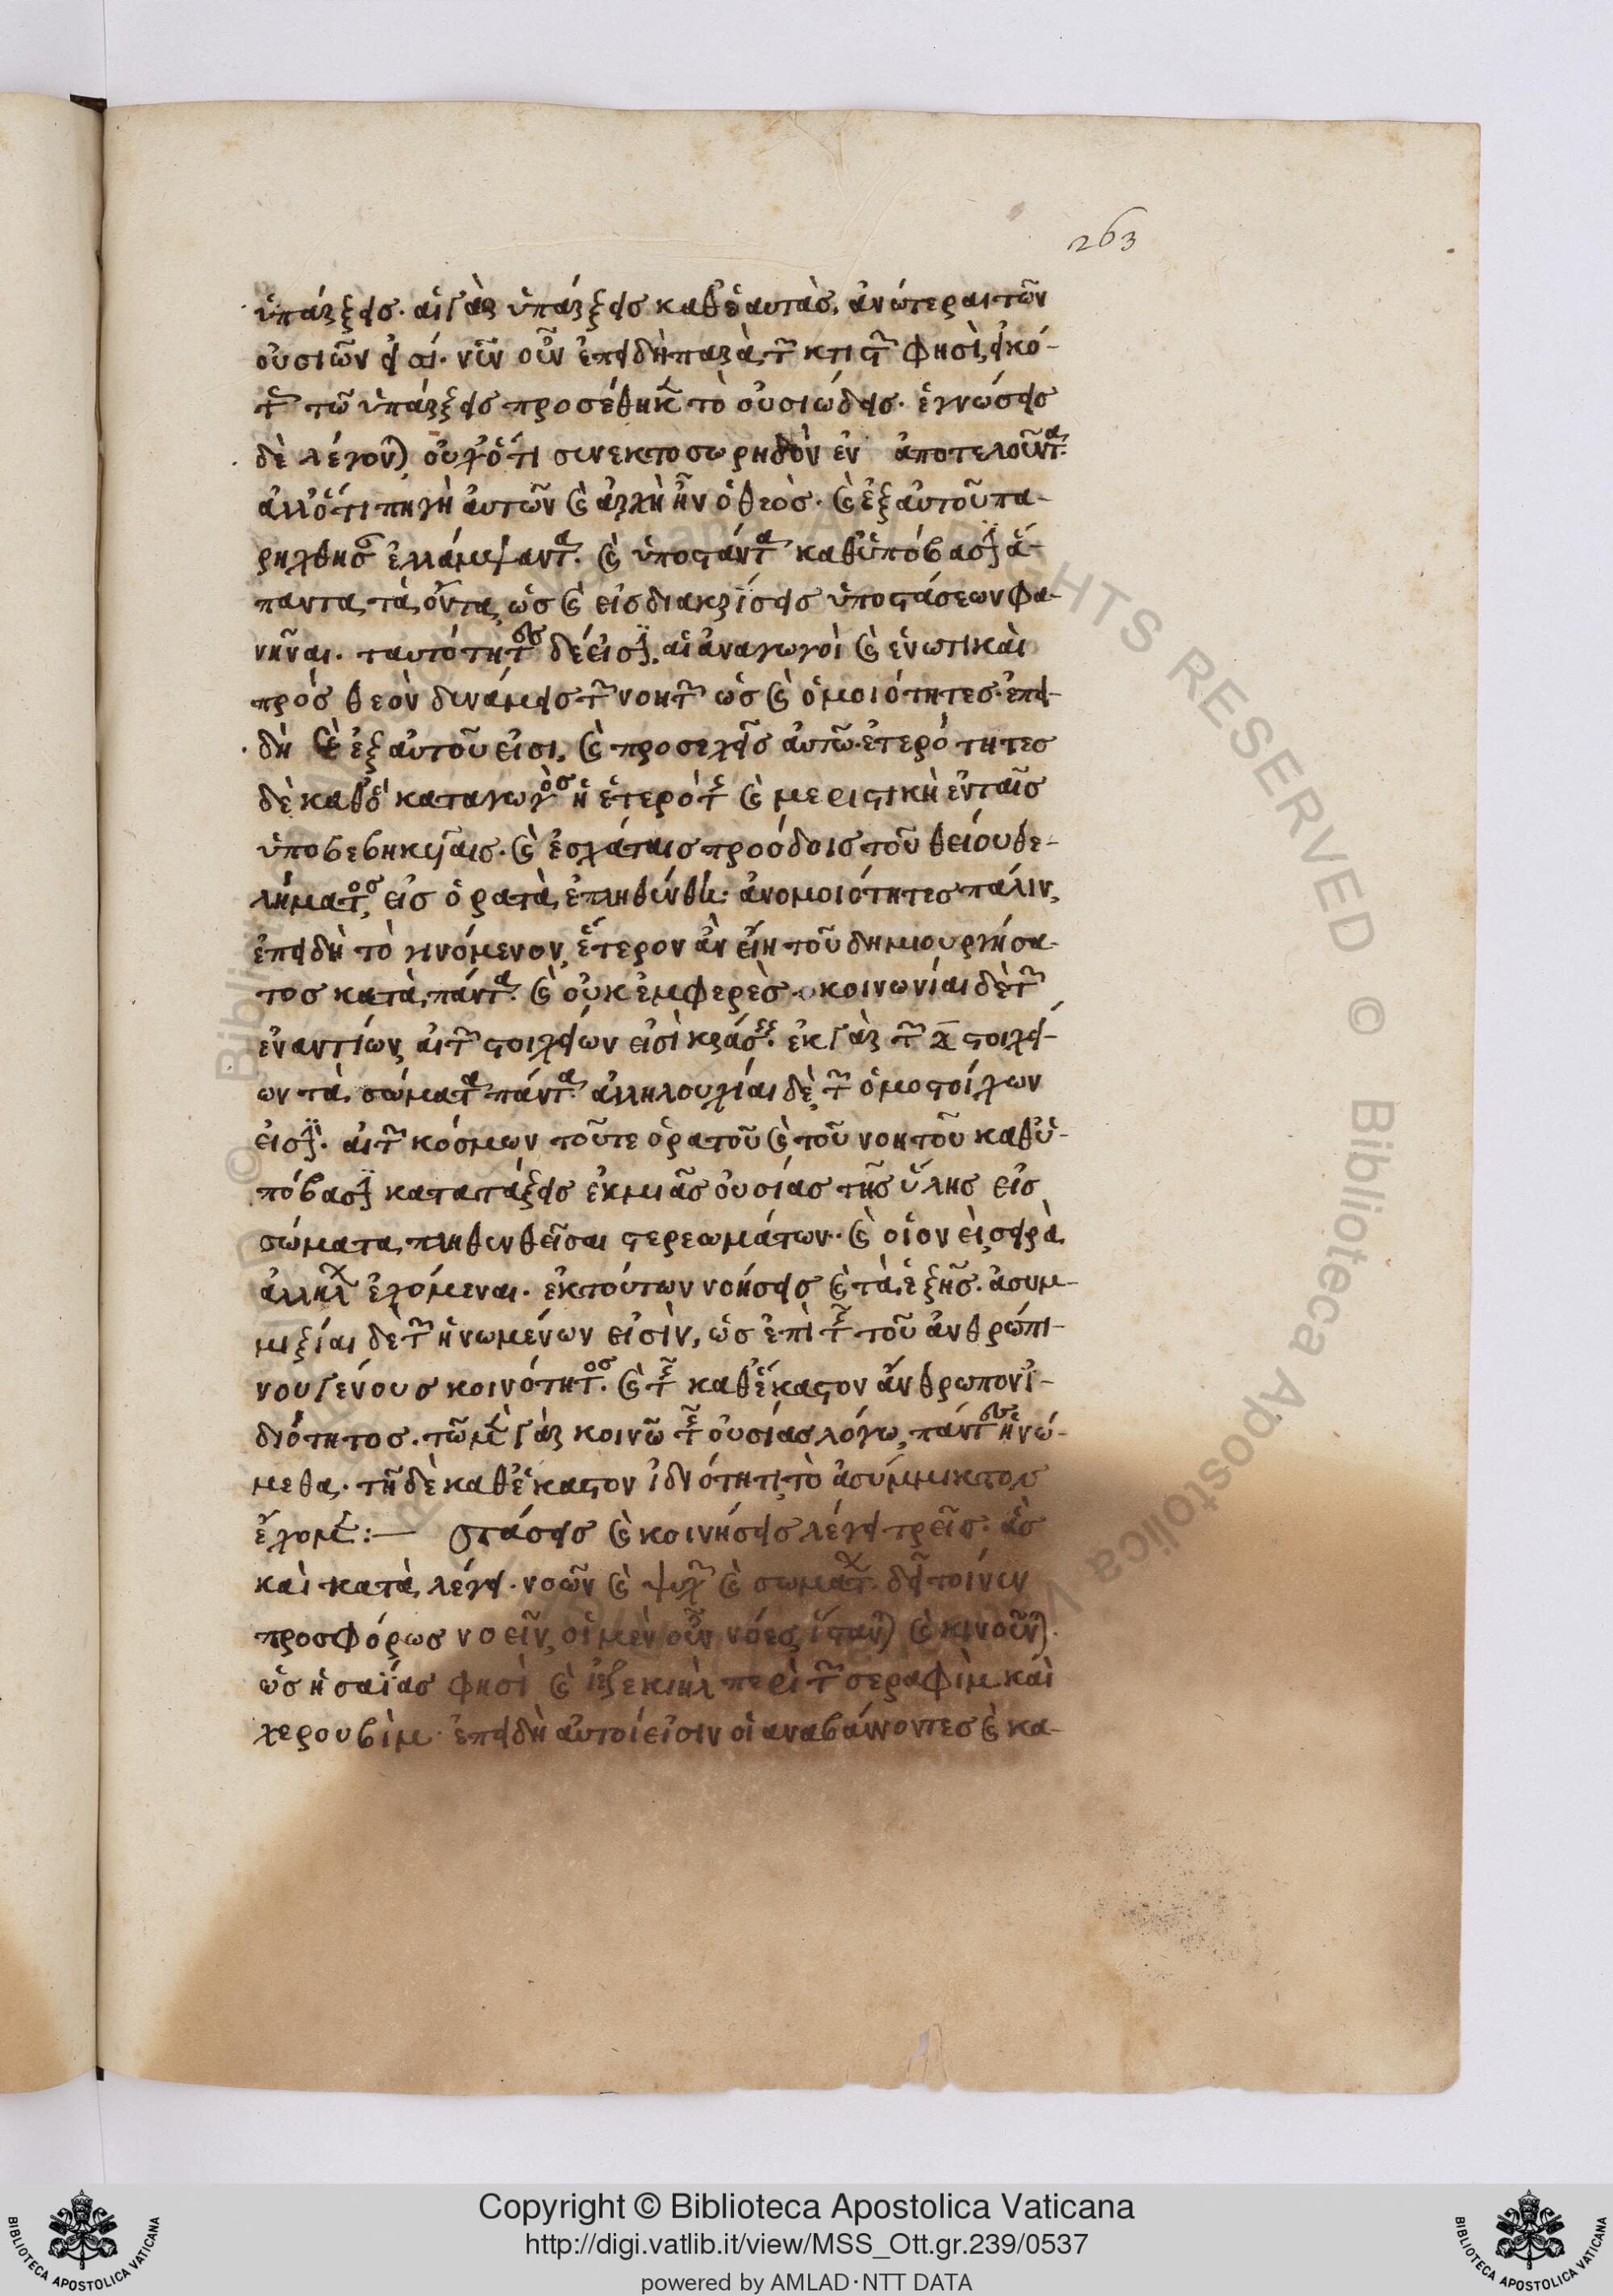 263
ὑπάρξεις. αἱ γὰρ ὑπάρξεις καθ' ἑαυτὰς, ἀνώτεραι τῶν
οὐσιῶν εἰσί. νῦν οὖν ἐπειδὴ παρὰ τῶν κτιστῶν φησὶ, εἰκό-
τως τῶ ὑπάρξεις προσέθηκε τὸ οὐσιώδεις. ἑνώσεις
δὲ λέγονται οὐχ' ὅτι συνεκτοσωρηδὸν ἐν ἀποτελοῦντα.
ἀλλ' ὅτι πηγὴ αὐτῶν καὶ ἀρχὴ ἦν ὁ θεὸς. καὶ ἐξ αὐτοῦ πα-
ρήχθησαν ἐλλάμψαντα. καὶ ὑποστάντα καθ' ὑπόβασιν ἅ-
παντα τὰ ὄντα, ὡς καὶ εἰς διακρίσεις ὑποστάσεων φα-
νῆναι. ταυτότητες δέ εἰσιν, αἱ ἀναγωγοὶ καὶ ἑνωτικαὶ
πρὸς θεὸν δυνάμεις τῶν νοητῶν ὡς καὶ ὁμοιότητες. ἐπει-
δὴ καὶ ἐξ αὐτοῦ εἰσι, καὶ προσεχεῖς αὐτῶ. ἑτερότητες
δὲ καθ' ὃ καταγωγὸς ἡ ἑτερότης καὶ μεριστικὴ ἐν ταῖς
ὑποβεβηκυίαις. καὶ ἐσχάταις προόδοις τοῦ θείου θε-
λήματος, εἰς ὁρατὰ ἐπληθύνθη. ἀνομοιότητες πάλιν,
ἐπειδὴ τὸ γινόμενον, ἕτερον ἂν εἴη τοῦ δημιουργήσα-
τος κατὰ πάντα. καὶ οὐκ ἐμφερὲς. κοινωνίαι δὲ τῶν
ἐναντίων, αἱ τῶν στοιχείων εἰσὶ κράσεις. ἐκ γὰρ τῶν δ στοιχεί-
ων τὰ σώματα πάντα. ἀλληλουχίαι δὲ, τῶν ὁμοστοίχων
εἰσιν. αἱ τῶν κόσμων τοῦ τε ὁρατοῦ καὶ τοῦ νοητοῦ καθ' ὑ-
πόβασιν κατατάξεις ἐκ μιᾶς οὐσίας τῆς ὕλης εἰς
σώματα πληθυνθεῖσαι στερεωμάτων. καὶ οἷον εἰ, σειρὰ
ἀλλήλων ἐχόμεναι. ἐκ τούτων νοήσεις καὶ τὰ ἑξῆς. ἀσυμ-
μιξίαι δὲ τῶν ἡνωμένων εἰσὶν, ὡς ἐπὶ τῆς τοῦ ἀνθρωπί-
νου γένους κοινότητος. καὶ τῆς καθ' ἕκαστον ἄνθρωπον ἰ-
διότητος. τῶ μὲν γὰρ κοινῶ τῆς οὐσίας λόγω, πάντες ἡνώ-
μεθα. τῆ δὲ καθ' ἕκαστον ἰδιότητι, τὸ ἀσύμμικτον
ἔχομεν:— στάσεις καὶ κοινήσεις λέγει τρεῖς. ἃς
καὶ κατὰ λέγει. νοῶν καὶ ψυχῶν καὶ σωμάτων. δεῖ τοίνυν
προσφόρως νοεῖν, οἱ μὲν οὖν νόες, ἵστανται καὶ κινοῦνται.
ὡς ἠσαΐας φησὶ καὶ ἰεζεκιὴλ περὶ τῶν σεραφὶμ καὶ
χερουβὶμ. ἐπειδὴ αὐτοί εἰσιν οἱ αναβαίνοντες καὶ κα-
Copyright © Biblioteca Apostolica Vaticana
http://digi.vatlib.it/view/MSS_Ott.gr.239/0537
powered by AMLAD·NTT DATA